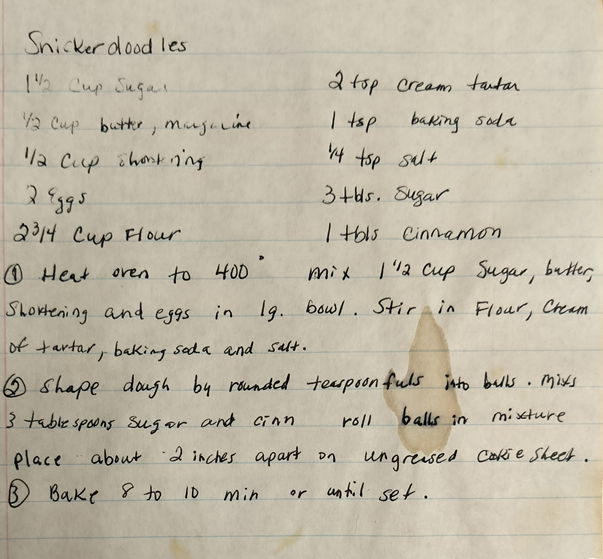 Snickerdoodles
1 1/2 Cup Sugar 2 tsp cream tartar
1/2 cup butter, margarine 1 tsp baking soda
1/2 Cup shortning 1/4 tsp salt
2 Eggs 3 tbls. Sugar
2 3/4 Cup Flour 1 tbls Cinnamon
① Heat oven to 400° mix 1 1/2 cup Sugar, butter,
Shortening and eggs in lg. bowl. Stir in Flour, Cream
of tartar, baking soda and salt.
② Shape dough by rounded teaspoonfuls into balls. Mixs
3 tablespoons sugar and cinn roll balls in mixture
place about 2 inches apart on ungreased Cookie Sheet.
③ Bake 8 to 10 min or until set.